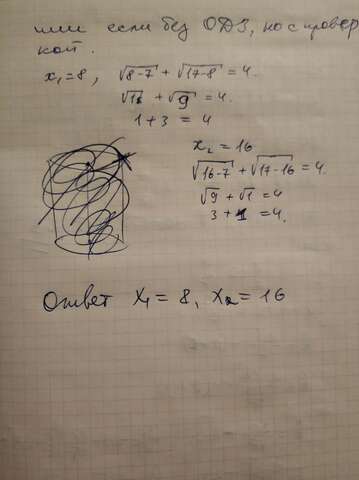 или если без ОДЗ, но с провер
кой.
x₁=8, √8-7 + √17-8 = 4.
√1 + √9 = 4.
1+3 = 4
x₂ = 16
√16-7 + √17-16 = 4.
√9 + √1 = 4
3 + 1 = 4.
Ответ x₁ = 8, x₂ = 16